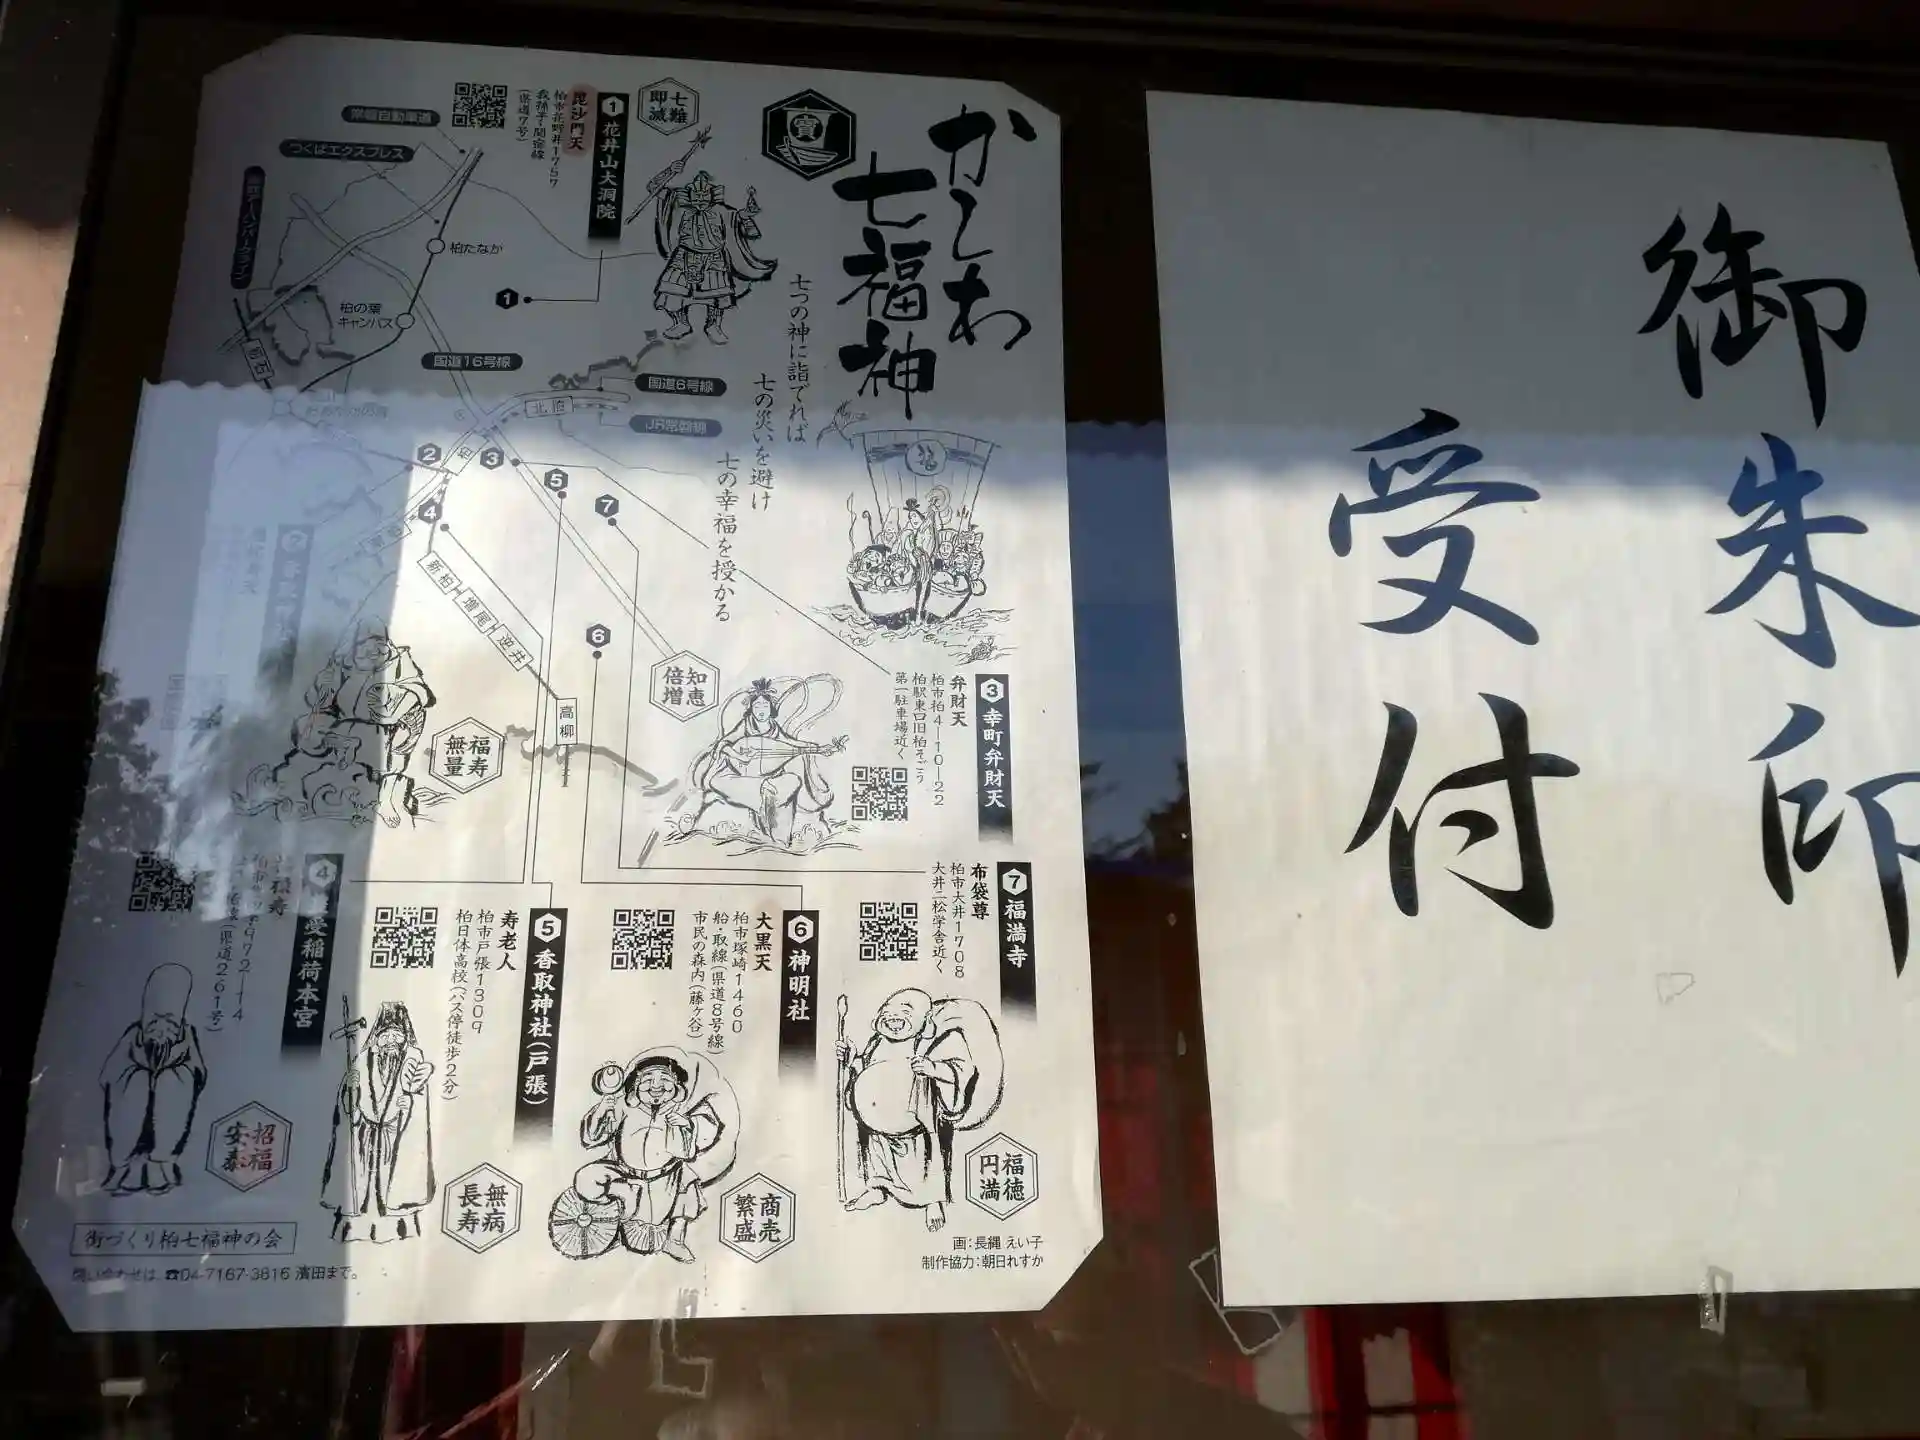 かしわ
七福神
寳
七つの神に詣でれば
七の災いを避け
七の幸福を授かる
七難
即滅
1 花井山大洞院
毘沙門天
柏市花野井1757
我孫子・関宿線
(県道7号)
常磐自動車道
つくばエクスプレス
柏たなか
柏の葉
キャンパス
国道16号線
国道6号線
JR常磐線
北柏
柏
1
2
3
4
5
6
7
新柏
増尾
逆井
高柳
福寿
無量
知恵
倍増
3 幸町弁財天
弁財天
柏市柏4-10-22
柏駅東口旧柏そごう
第一駐車場近く
4
愛稲荷本宮
972-14
(県道261号)
招福
安泰
5 香取神社(戸張)
寿老人
柏市戸張1309
柏日体高校(バス停徒歩2分)
無病
長寿
6 神明社
大黒天
柏市塚崎1460
船・取線(県道8号線)
市民の森内(藤ヶ谷)
商売
繁盛
7 福満寺
布袋尊
柏市大井1708
大井二松学舎近く
福徳
円満
画:長縄 えい子
制作協力:朝日れすか
街づくり柏七福神の会
問い合わせは ☎04-7167-3816 濱田まで。
御朱印
受付